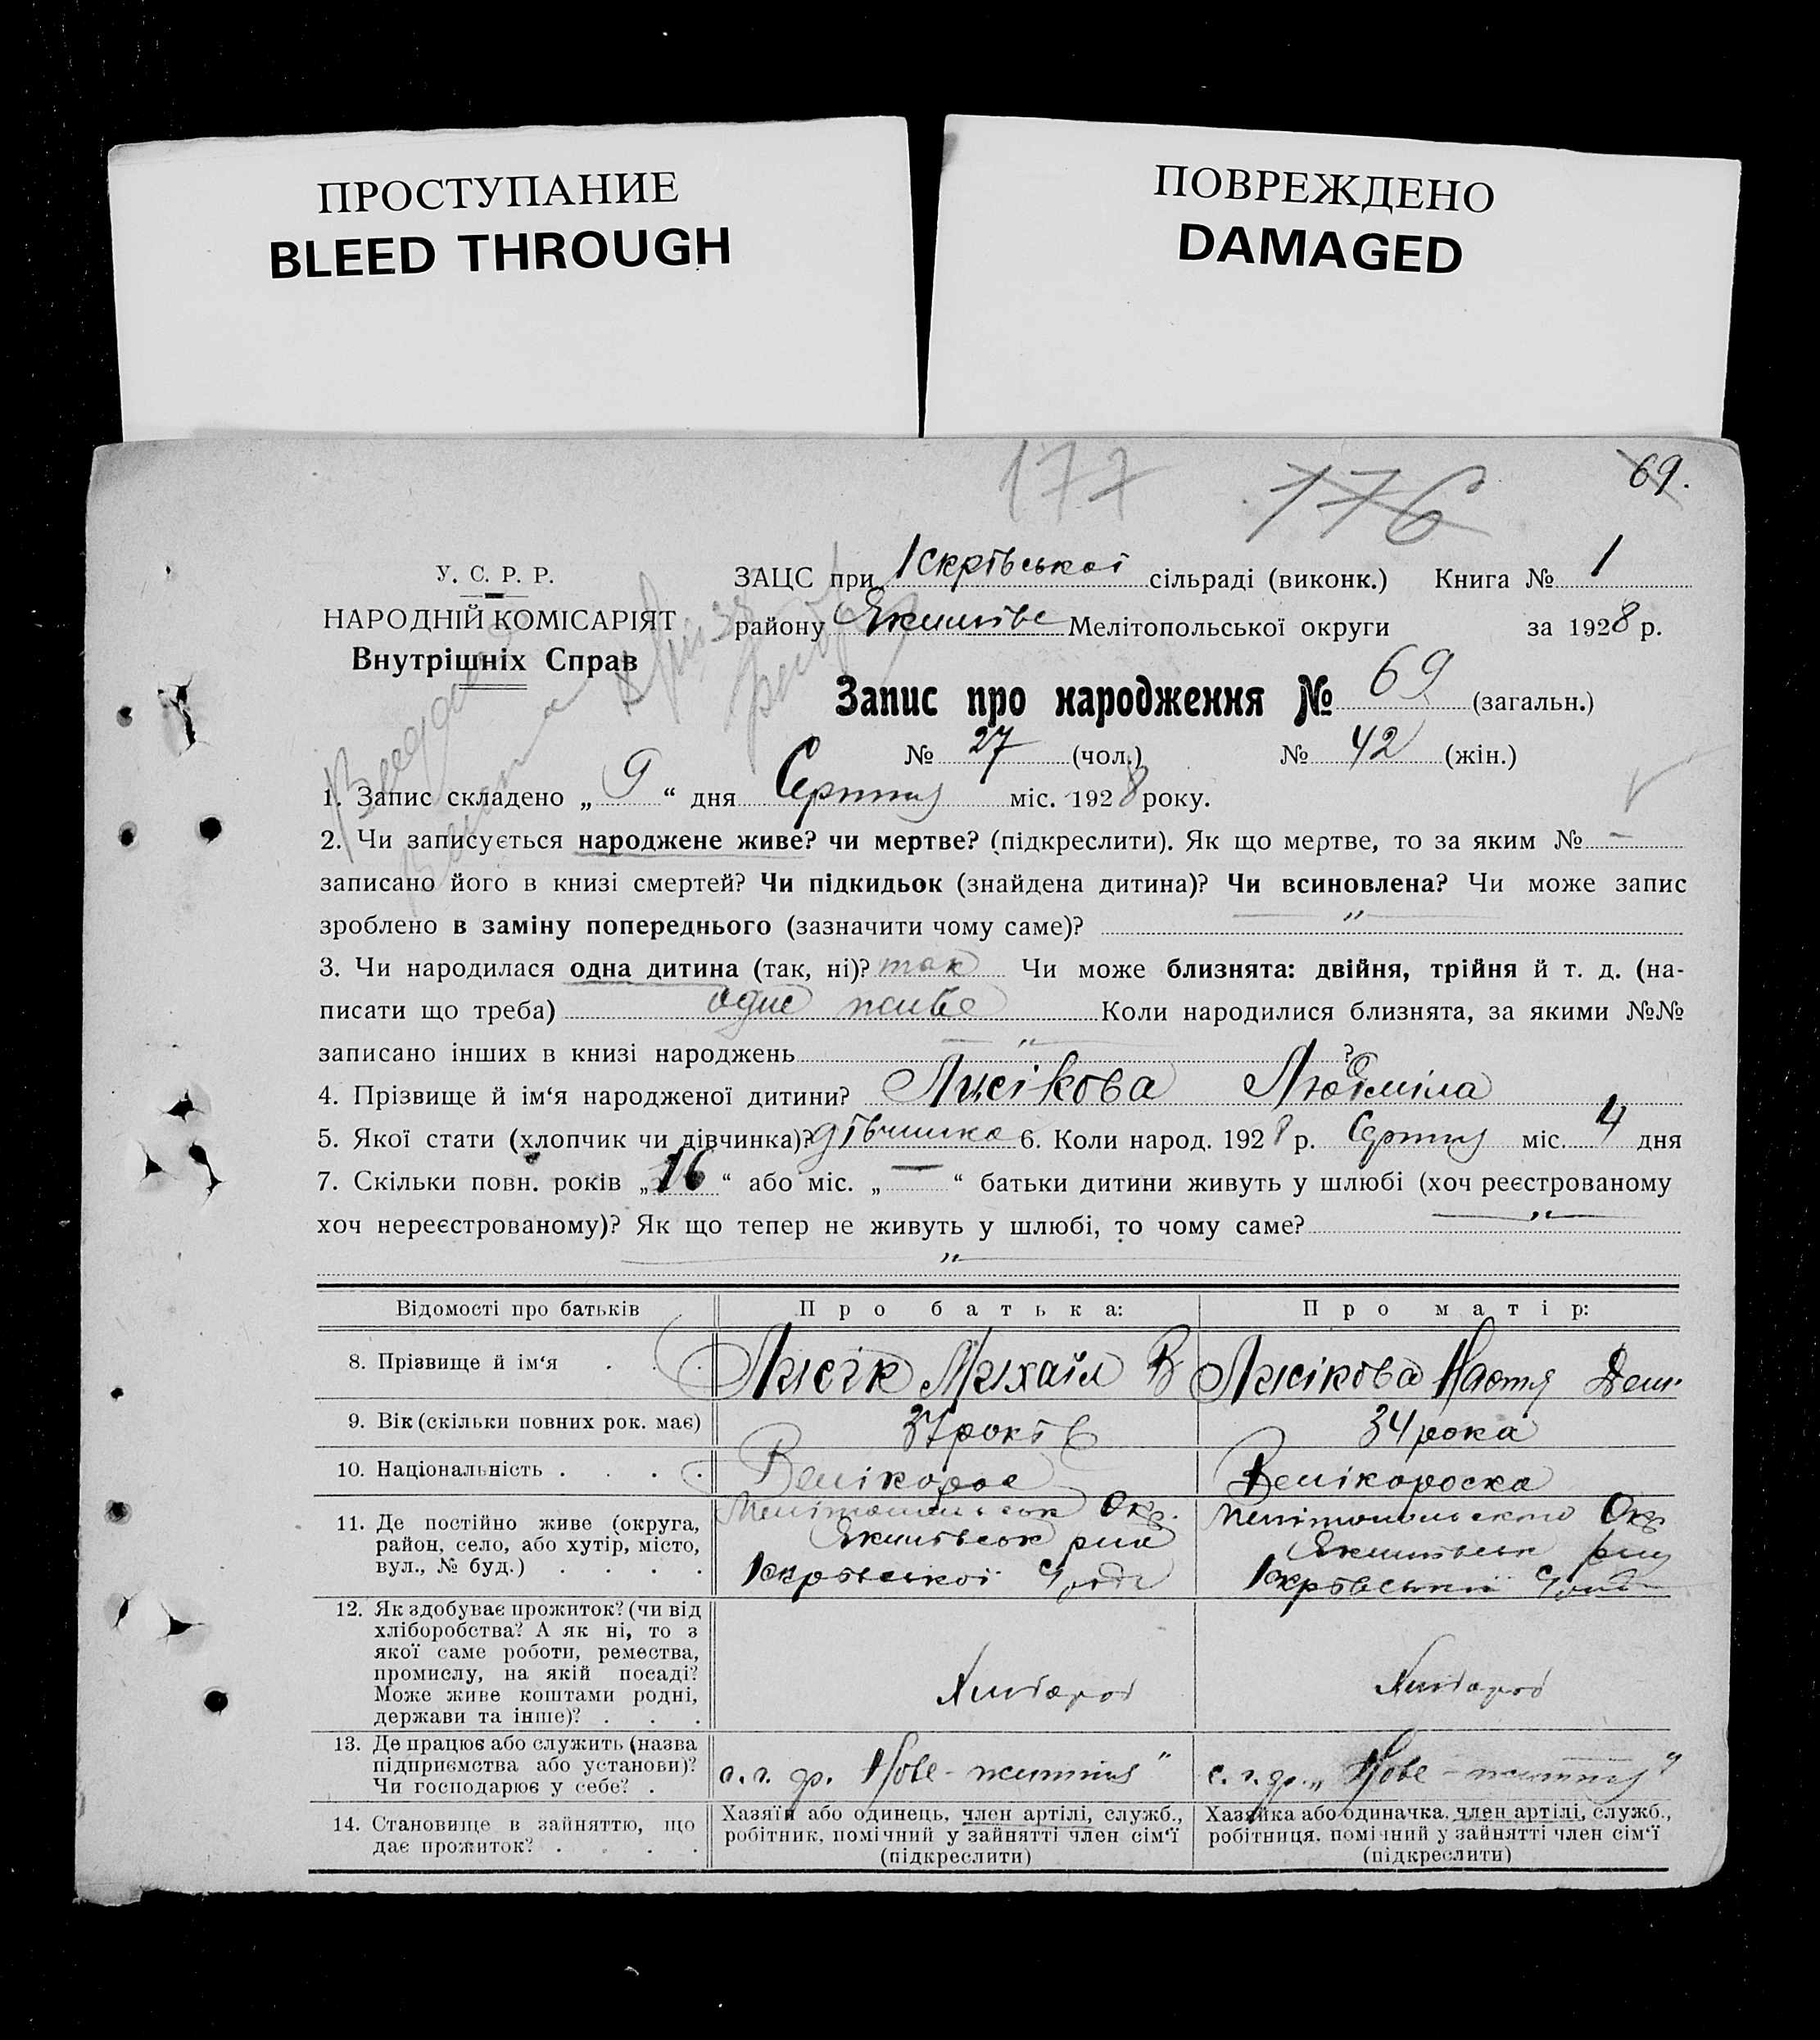 ПРОСТУПАНИЕ
BLEED THROUGH
ПОВРЕЖДЕНО
DAMAGED
177 176 69.
У. С. Р. Р.
НАРОДНІЙ КОМІСАРІЯТ
Внутрішніх Справ
ЗАЦС при Іскрівської сільраді (виконк.) Книга № 1
району Якимівс Мелітопольської округи за 1928 р.
Запис про народження № 69 (загальн.)
№ 27 (чол.) № 42 (жін.)
1. Запис складено „ 9 “ дня Серпня міс. 1928 року.
2. Чи записується народжене живе? чи мертве? (підкреслити). Як що мертве, то за яким № –
записано його в книзі смертей? Чи підкидьок (знайдена дитина)? Чи всиновлена? Чи може запис
зроблено в заміну попереднього (зазначити чому саме)? — „ —
3. Чи народилася одна дитина (так, ні)? так Чи може близнята: двійня, трійня й т. д. (на-
писати що треба) одне живе Коли народилися близнята, за якими №№
записано інших в книзі народжень — „ — ?
4. Прізвище й ім‘я народженої дитини? Лисікова Людміла
5. Якої стати (хлопчик чи дівчинка)? дівчинка 6. Коли народ. 1928 р. Серпня міс. 4 дня
7. Скільки повн. років „ 16 “ або міс. „ — “ батьки дитини живуть у шлюбі (хоч реєстрованому
хоч нереєстрованому)? Як що тепер не живуть у шлюбі, то чому саме? — „ —
— „ —
Відомості про батьків Про батька: Про матір:
8. Прізвище й ім‘я . . . Лисік Михаіл В Лисікова Настя Дем.
9. Вік (скільки повних рок. має) 37 років 34 рока
10. Національність . . . . Велікорос Велікороска
11. Де постійно живе (округа,
район, село, або хутір, місто,
вул., № буд.) . . . .
Окр.
Якимівськ рай
Іскрівської
Мелітопольского Окр
Якимівськ
Іскрівської
12. Як здобуває прожиток? (чи від
хліборобства? А як ні, то з
якої саме роботи, ремества,
промислу, на якій посаді?
Може живе коштами родні,
держави та інше)? . . .
Хлібороб Хлібороб
13. Де працює або служить (назва
підприємства або установи)?
Чи господарює у себе? .
с. г. ар. Нове-життя“ с. г. ар. „Нове-життя“
14. Становище в зайняттю, що
дає прожиток? . . . .
Хазяїн або одинець, член артілі, служб.,
робітник, помічний у зайнятті член сім‘ї
(підкреслити)
Хазяйка або одиначка, член артілі, служб.,
робітниця, помічний у зайнятті член сім‘ї
(підкреслити)